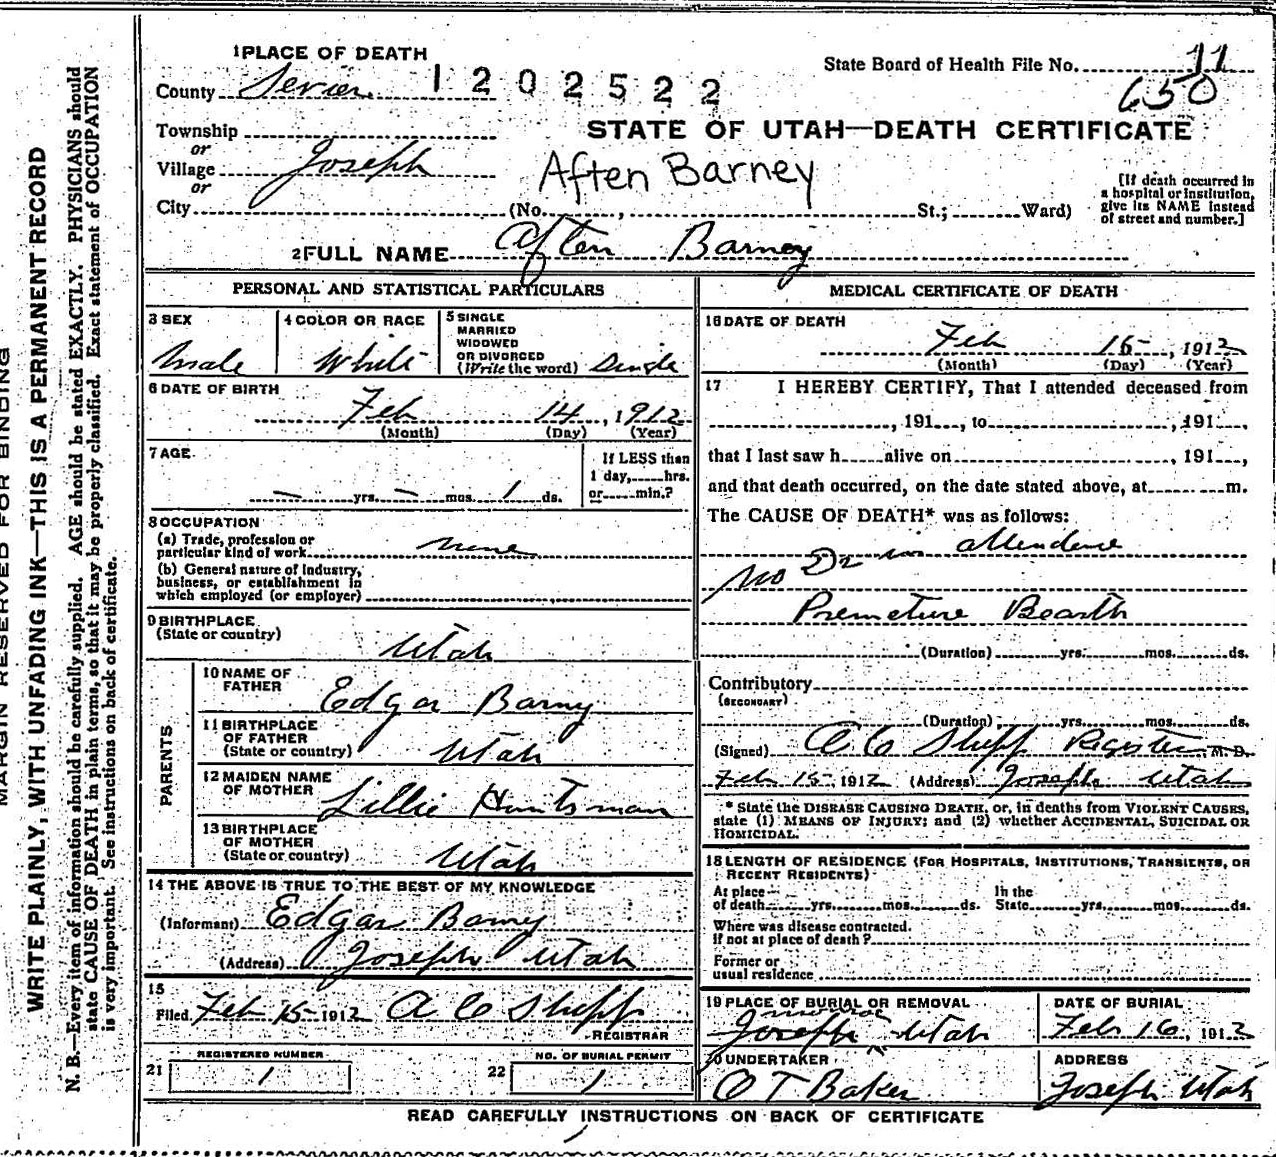 MARGIN RESERVED FOR BINDING
WRITE PLAINLY, WITH UNFADING INK—THIS IS A PERMANENT RECORD
N. B.—Every item of information should be carefully supplied. AGE should be stated EXACTLY. PHYSICIANS should
state CAUSE OF DEATH in plain terms, so that it may be properly classified. Exact statement of OCCUPATION
is very important. See instructions on back of certificate.
1 PLACE OF DEATH
State Board of Health File No. 11
County Sevier 1202522
650
Township
or
STATE OF UTAH—DEATH CERTIFICATE
Village Joseph
or
Aften Barney
City (No. , St.; Ward)
[If death occurred in
a hospital or institution,
give its NAME instead
of street and number.]
2 FULL NAME Aften Barney
PERSONAL AND STATISTICAL PARTICULARS
3 SEX
Male
4 COLOR OR RACE
White
5 SINGLE
MARRIED
WIDOWED
OR DIVORCED
(Write the word) Single
6 DATE OF BIRTH
Feb 14, 1912
(Month) (Day) (Year)
7 AGE
— yrs. — mos. 1 ds.
If LESS than
1 day, hrs.
or min.?
8 OCCUPATION
(a) Trade, profession or
particular kind of work none
(b) General nature of industry,
business, or establishment in
which employed (or employer)
9 BIRTHPLACE
(State or country)
Utah
PARENTS
10 NAME OF
FATHER
Edgar Barny
11 BIRTHPLACE
OF FATHER
(State or country) Utah
12 MAIDEN NAME
OF MOTHER
Lillie Huntsman
13 BIRTHPLACE
OF MOTHER
(State or country) Utah
14 THE ABOVE IS TRUE TO THE BEST OF MY KNOWLEDGE
(Informant) Edgar Barny
(Address) Joseph Utah
15
Filed Feb 15- 1912 A C Shepp
REGISTRAR
21
REGISTERED NUMBER
1
22
NO. OF BURIAL PERMIT
1
MEDICAL CERTIFICATE OF DEATH
16 DATE OF DEATH
Feb 15-, 1912
(Month) (Day) (Year)
17 I HEREBY CERTIFY, That I attended deceased from
, 191 , to , 191 ,
that I last saw h alive on , 191 ,
and that death occurred, on the date stated above, at m.
The CAUSE OF DEATH* was as follows:
No Dr in attendence
Premeture Bearth
(Duration) yrs. mos. ds.
Contributory
(SECONDARY)
(Duration) yrs. mos. ds.
(Signed) A C Shepp Register M. D.
Feb 15- 1912 (Address) Joseph Utah
* State the DISEASE CAUSING DEATH, or, in deaths from VIOLENT CAUSES,
state (1) MEANS OF INJURY; and (2) whether ACCIDENTAL, SUICIDAL OR
HOMICIDAL.
18 LENGTH OF RESIDENCE (FOR HOSPITALS, INSTITUTIONS, TRANSIENTS, OR
RECENT RESIDENTS)
At place
of death yrs. mos. ds.
In the
State yrs. mos. ds.
Where was disease contracted.
if not at place of death?
Former or
usual residence
19 PLACE OF BURIAL OR REMOVAL
monroe
Joseph Utah
DATE OF BURIAL
Feb 16, 1912
20 UNDERTAKER
O T Baker
ADDRESS
Joseph Utah
READ CAREFULLY INSTRUCTIONS ON BACK OF CERTIFICATE